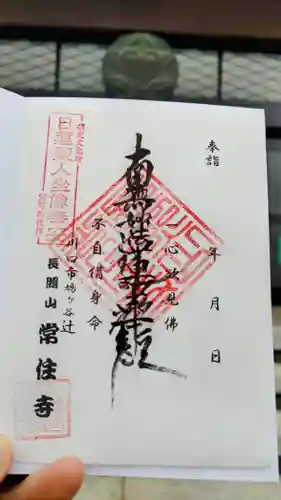 奉詣
年 月 日
一心欲見佛
南無妙法蓮華経
不自惜身命
川口市鳩ヶ谷辻
長閑山 常住寺
日蓮聖人坐像奉安